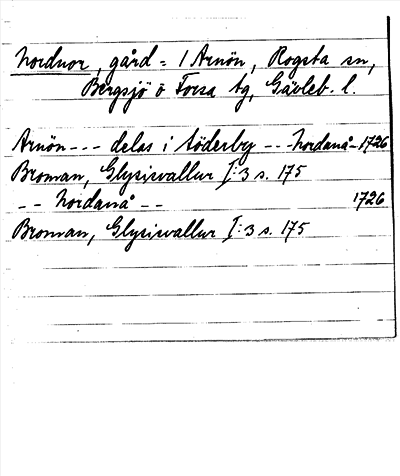 Nordnor, gård = 1 Arnön, Rogsta sn,
Bergsjö o Forsa tg, Gävleb. l.
Arnön --- delas i Söderby --- Nordanå - 1726
Broman, Glysisvallur I:3 s. 175
-- Nordanå -- 1726
Broman, Glysisvallur I:3 s. 175